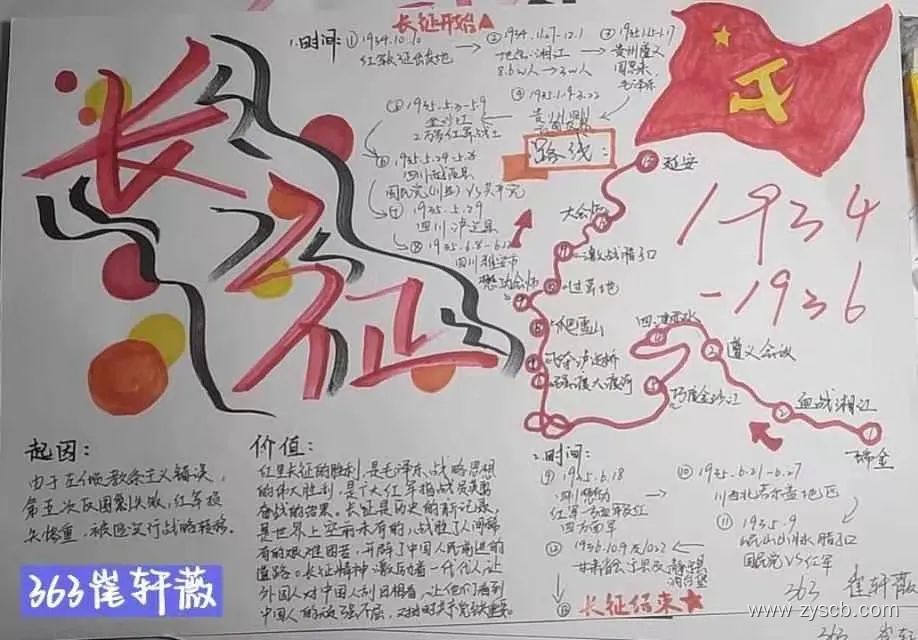 长征开始
1.时间：① 1934.10.10
红军长征出发地
② 1934.11.27-12.1
地点：湘江
8.6w人→3w人
贵州遵义
周恩来、
毛泽东
⑤ 1935.5.3-5.9
金沙江
⑥ 1935.5.24-5.26
1935.5.29
四川泸定县
四川雅安市
懋功会师
长征
路线：
延安
大会师
激战腊子口
过草地
爬雪山
飞夺泸定桥
强渡大渡河
巧渡金沙江
四渡赤水
遵义会议
血战湘江
瑞金
1934
-1936
起因：
由于左倾教条主义错误，
第五次反围剿失败，红军损
失惨重，被迫实行战略转移。
价值：
红军长征的胜利，是毛泽东战略思想
的伟大胜利，是广大红军指战员英勇
奋战的结果。长征是历史的新记录，
是世界上空前未有的，战胜了人间稀
有的艰难困苦，开辟了中国人民前进的
道路。长征精神激励着一代代人，让
外国人对中国人刮目相看，让他们看到
中国人的顽强不屈，
2.时间
⑨ 1935.6.18
四川懋功
红军一方面军及红
四方面军
⑩ 1935.8.21-8.27
川西北若尔盖地区
⑪ 1935.9
岷山山脉腊子口
国民党VS红军
⑫ 1936.10.9及10.22
甘肃会宁县及静宁县
将台堡
长征结束
363 崔轩薇
363崔轩薇
www.zyscb.com